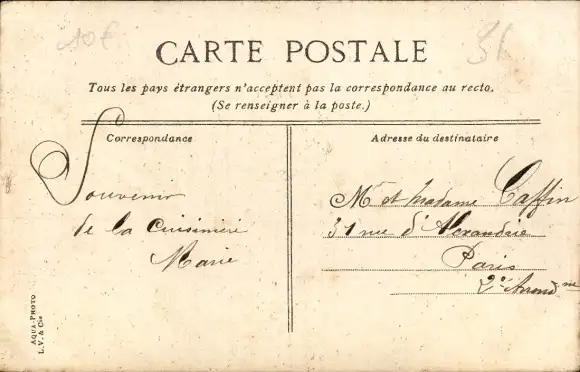 10€
31
CARTE POSTALE
Tous les pays étrangers n'acceptent pas la correspondance au recto.
(Se renseigner à la poste.)
Correspondance
Souvenir
de la Cuisinière
Marie
Adresse du destinataire
Mr et Madame Caffin
31 rue d'Alexandrie
Paris
2e Arrondme
AQUA-PHOTO
L.V. & Cie